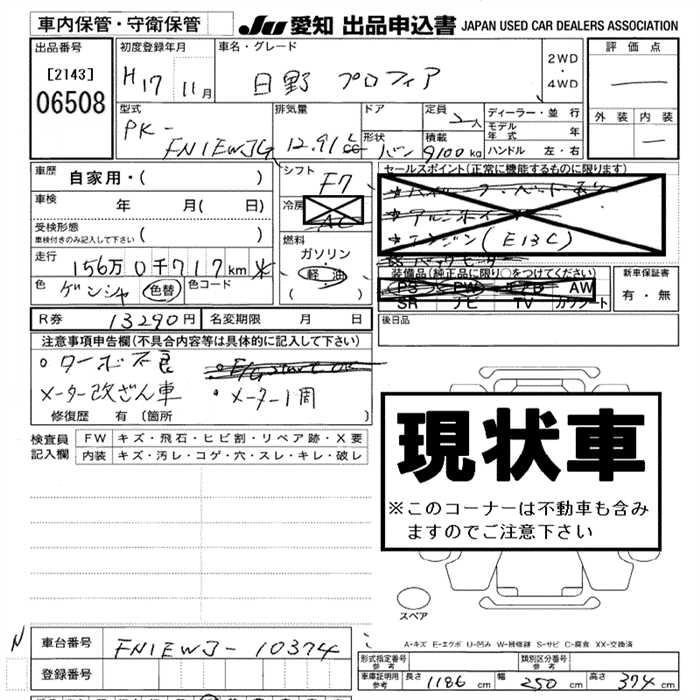 車内保管・守衛保管
JU 愛知 出品申込書 JAPAN USED CAR DEALERS ASSOCIATION
出品番号
[2143]
06508
初度登録年月
H17 11月
車名・グレード
日野 プロフィア
2WD
・
4WD
評価点
外装 内装
型式
PK-
FN1EWJG
排気量
12.91
ドア
形状
バン
定員
2人
積載
9100 kg
ディーラー・並行
モデル年式 年
ハンドル 左・右
車歴
自家用・( )
車検
年 月( 日)
受検形態
車検付きのみ記入して下さい ( )
走行
156万0千717km *
色
ゲンシャ
色替
色コード
シフト
F7
冷房
AC
燃料
ガソリン
・
軽油
( )
セールスポイント(正常に機能するものに限ります)
*エンジン(E13C)
装備品(純正品に限り○をつけてください)
PS PW エアB AW
SR ナビ TV カワシート
新車保証書
有・無
R券
13290円
名変期限 月 日
後日品
注意事項申告欄(不具合内容等は具体的に記入して下さい)
・ターボ不良
メーター改ざん車
・メーター1周
修復歴 有〔箇所 〕
検査員
記入欄
FW キズ・飛石・ヒビ割・リペア跡・X要
内装 キズ・汚レ・コゲ・穴・スレ・キレ・破レ
現状車
※このコーナーは不動車も含み
ますのでご注意下さい
スペア
A-キズ E-エクボ U-凹み W-補修跡 S-サビ C-腐食 XX-交換済
N
車台番号
FN1EWJ-10374
登録番号
型式指定番号
参考
類別区分番号
参考
車庫証明用
参考
長さ 1186 cm
幅 250 cm
高さ 374 cm